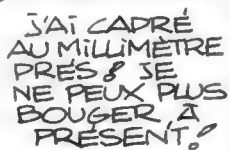 J'AI CADRÉ
AU MILLIMÈTRE
PRÈS ! JE
NE PEUX PLUS
BOUGER À
PRÉSENT !